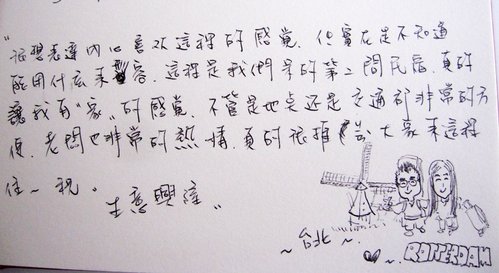 "很想表達內心喜歡這裡的感覺. 但實在是不知道
能用什么來形容. 這裡是我們来的第二間民宿. 真的
讓我有"家"的感覺. 不管是地桌还是交通都非常的方
便. 老闆也非常的熱情. 真的很推荐大家來這裡
住~ 祝.
生意興隆"
~台北~
ROTTERDAM